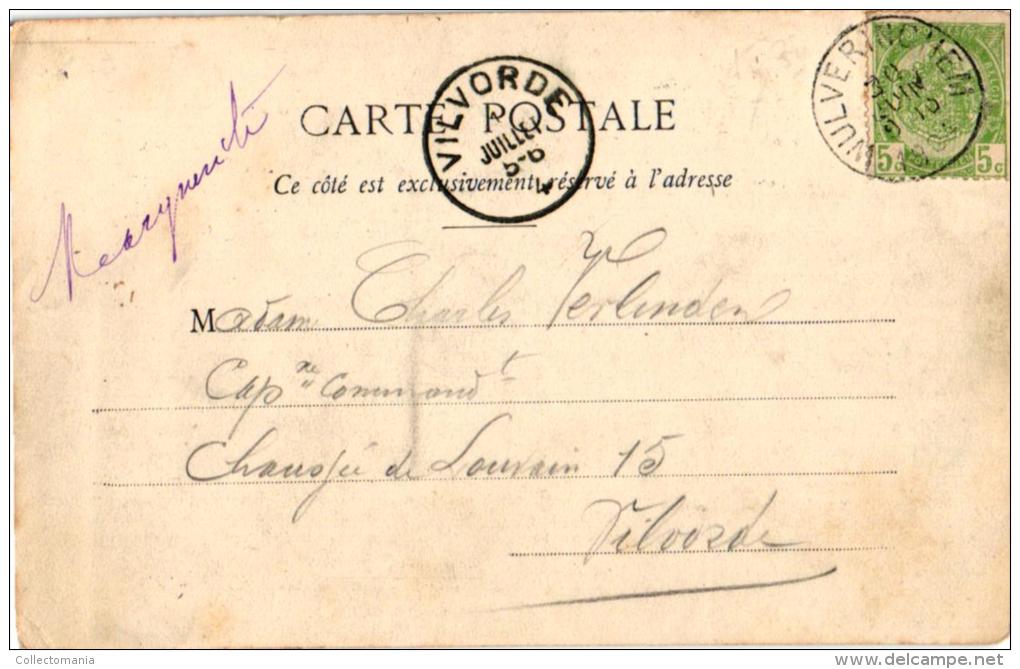 CARTE POSTALE
Ce côté est exclusivement réservé à l'adresse
VILVORDE
JUILLET
5-6
WULVERINGHEM
JUIN
5c 5c
Madame Charles Verlinden
Capne Commandt
Chaussée de Louvain 15
Vilvorde
Collectomania
delcampe.net